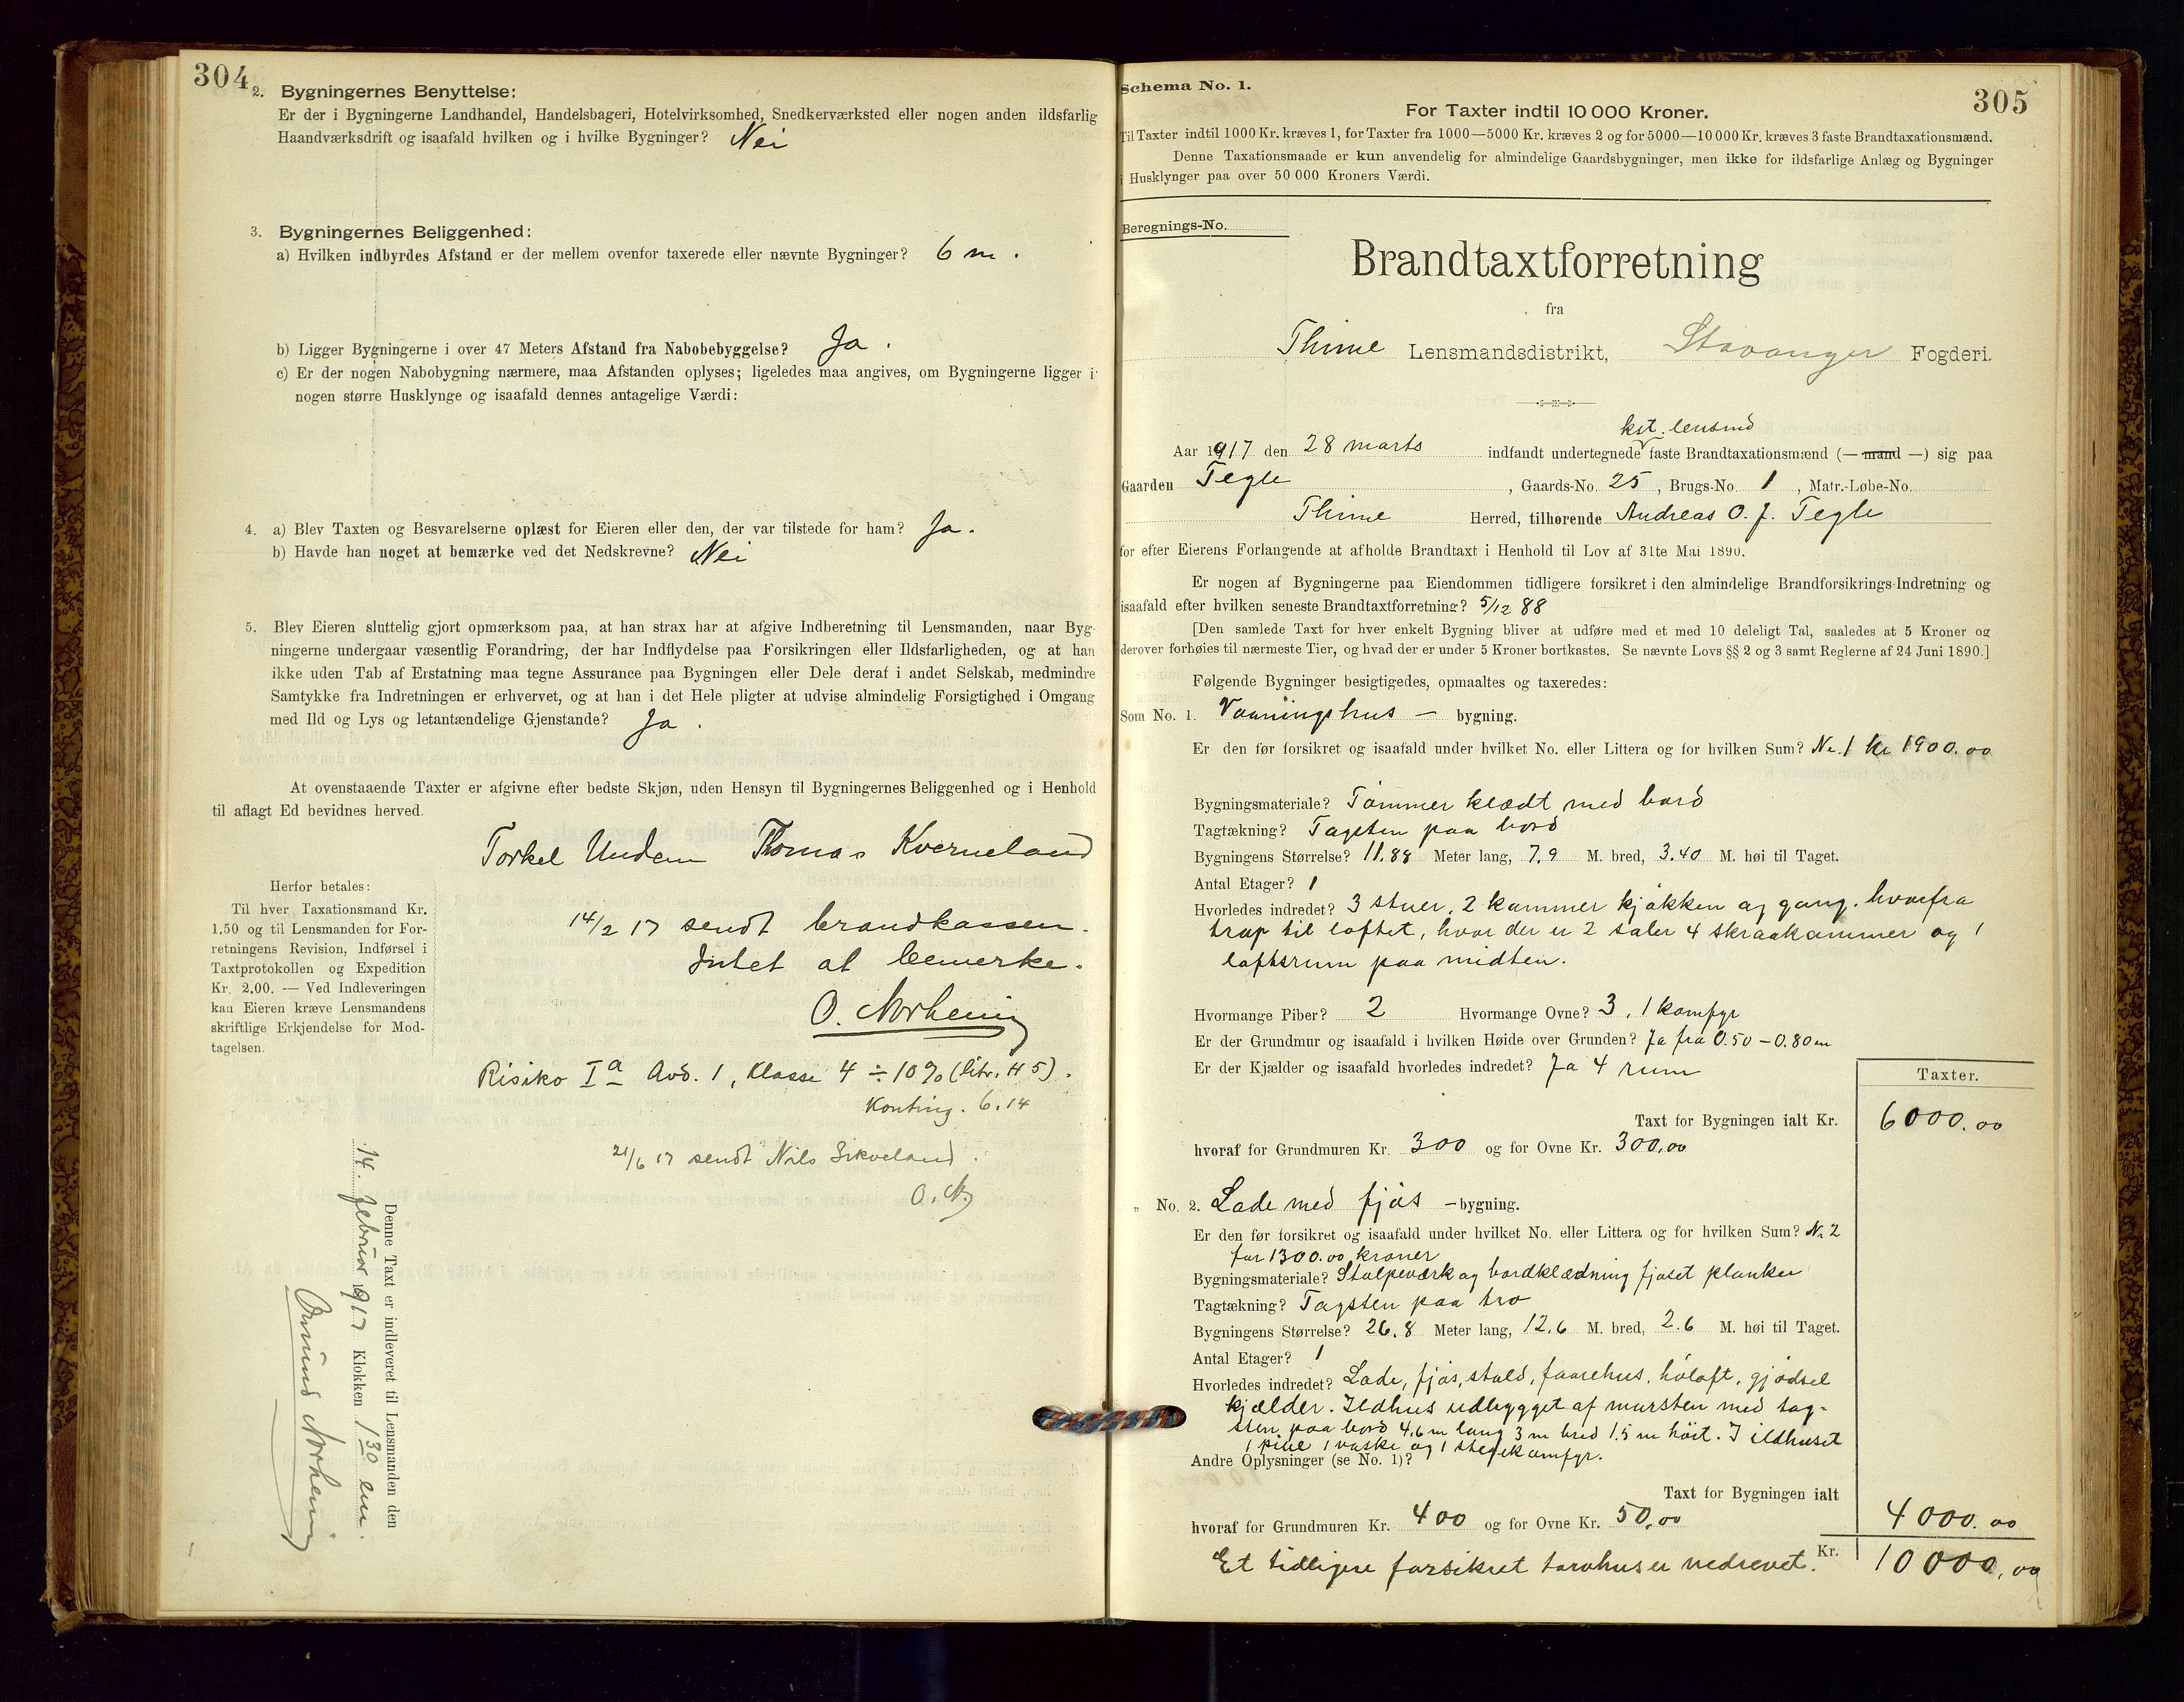 304
2. Bygningernes Benyttelse:
Er der i Bygningerne Landhandel, Handelsbageri, Hotelvirksomhed, Snedkerværksted eller nogen anden ildsfarlig
Haandværksdrift og isaafald hvilken og i hvilke Bygninger? Nei
3. Bygningernes Beliggenhed:
a) Hvilken indbyrdes Afstand er der mellem ovenfor taxerede eller nævnte Bygninger? 6 m.
b) Ligger Bygningerne i over 47 Meters Afstand fra Nabobebyggelse? Ja.
c) Er der nogen Nabobygning nærmere, maa Afstanden oplyses; ligeledes maa angives, om Bygningerne ligger i
nogen større Husklynge og isaafald dennes antagelige Værdi:
4. a) Blev Taxten og Besvarelserne oplæst for Eieren eller den, der var tilstede for ham? Ja.
b) Havde han noget at bemærke ved det Nedskrevne? Nei
5. Blev Eieren sluttelig gjort opmærksom paa, at han strax har at afgive Indberetning til Lensmanden, naar Byg-
ningerne undergaar væsentlig Forandring, der har Indflydelse paa Forsikringen eller Ildsfarligheden, og at han
ikke uden Tab af Erstatning maa tegne Assurance paa Bygningen eller Dele deraf i andet Selskab, medmindre
Samtykke fra Indretningen er erhvervet, og at han i det Hele pligter at udvise almindelig Forsigtighed i Omgang
med Ild og Lys og letantændelige Gjenstande? Ja.
At ovenstaaende Taxter er afgivne efter bedste Skjøn, uden Hensyn til Bygningernes Beliggenhed og i Henhold
til aflagt Ed bevidnes herved.
Torkel Undem Thomas Kverneland
Herfor betales:
Til hver Taxationsmand Kr.
1.50 og til Lensmanden for For-
retningens Revision, Indførsel i
Taxtprotokollen og Expedition
Kr. 2.00. — Ved Indleveringen
kan Eieren kræve Lensmandens
skriftlige Erkjendelse for Mod-
tagelsen.
14/2 17 sendt brandkassen.
Intet at bemerke.
O. Norheim
Risiko Ia Avd. 1, Klasse 4 ÷ 10% (litr. H 5).
Konting. 6.14
21/6 17 sendt Nils Sikveland.
O. N.
Denne Taxt er indleveret til Lensmanden den
14. februar 1917 Klokken 1 30 em.
Omund Norheim
Schema No. 1.
305
For Taxter indtil 10 000 Kroner.
Til Taxter indtil 1000 Kr. kræves 1, for Taxter fra 1000—5000 Kr. kræves 2 og for 5000—10 000 Kr. kræves 3 faste Brandtaxationsmænd.
Denne Taxationsmaade er kun anvendelig for almindelige Gaardsbygninger, men ikke for ildsfarlige Anlæg og Bygninger
i Husklynger paa over 50 000 Kroners Værdi.
Beregnings-No.
Brandtaxtforretning
fra
Thime Lensmandsdistrikt, Stavanger Fogderi.
kst. lensmd
Aar 1917 den 28 marts indfandt undertegnede faste Brandtaxationsmænd (— mand —) sig paa
Gaarden Tegle, Gaards-No. 25, Brugs-No. 1, Matr.-Løbe-No.
Thime Herred, tilhørende Andreas O. J. Tegle
for efter Eierens Forlangende at afholde Brandtaxt i Henhold til Lov af 31te Mai 1890.
Er nogen af Bygningerne paa Eiendommen tidligere forsikret i den almindelige Brandforsikrings-Indretning og
isaafald efter hvilken seneste Brandtaxtforretning? 5/12 88
[Den samlede Taxt for hver enkelt Bygning bliver at udføre med et med 10 deleligt Tal, saaledes at 5 Kroner og
derover forhøies til nærmeste Tier, og hvad der er under 5 Kroner bortkastes. Se nævnte Lovs §§ 2 og 3 samt Reglerne af 24 Juni 1890.]
Følgende Bygninger besigtigedes, opmaaltes og taxeredes:
Som No. 1. Vaaningshus — bygning.
Er den før forsikret og isaafald under hvilket No. eller Littera og for hvilken Sum? Nr. 1 kr 1900.00
Bygningsmateriale? Tømmer klædt med bord
Tagtækning? Tagsten paa bord
Bygningens Størrelse? 11.88 Meter lang, 7.9 M. bred, 3.40 M. høi til Taget.
Antal Etager? 1
Hvorledes indredet? 3 stuer, 2 kammer kjøkken og gang. hvorfra
trap til loftet, hvor der er 2 saler 4 skraakammer og 1
loftsrum paa midten.
Hvormange Piber? 2 Hvormange Ovne? 3, 1 komfyr
Er der Grundmur og isaafald i hvilken Høide over Grunden? Ja fra 0.50 – 0.80 m
Er der Kjælder og isaafald hvorledes indredet? Ja 4 rum
Taxter.
Taxt for Bygningen ialt Kr. 6000.00
hvoraf for Grundmuren Kr. 300 og for Ovne Kr. 300,00
" No. 2. Lade med fjøs — bygning.
Er den før forsikret og isaafald under hvilket No. eller Littera og for hvilken Sum? Nr 2
for 1300.00 kroner
Bygningsmateriale? Stolpeværk og bordklædning fjøset planker
Tagtækning? Tagsten paa tro
Bygningens Størrelse? 26.8 Meter lang, 12.6 M. bred, 2.6 M. høi til Taget.
Antal Etager? 1
Hvorledes indredet? Lade, fjøs, stald, faarehus, høloft, gjødsel
kjælder. Ildhus udbygget af mursten med tag-
sten paa bord 4.6 m lang 3 m bred 1.5 m høit. I ildhuset
1 pibe 1 vaske og 1 stegekomfyr.
Andre Oplysninger (se No. 1)?
Taxt for Bygningen ialt 4000.00
hvoraf for Grundmuren Kr. 400 og for Ovne Kr. 50,00
Et tidligere forsikret torvhus er nedrevet. Kr. 10000,00